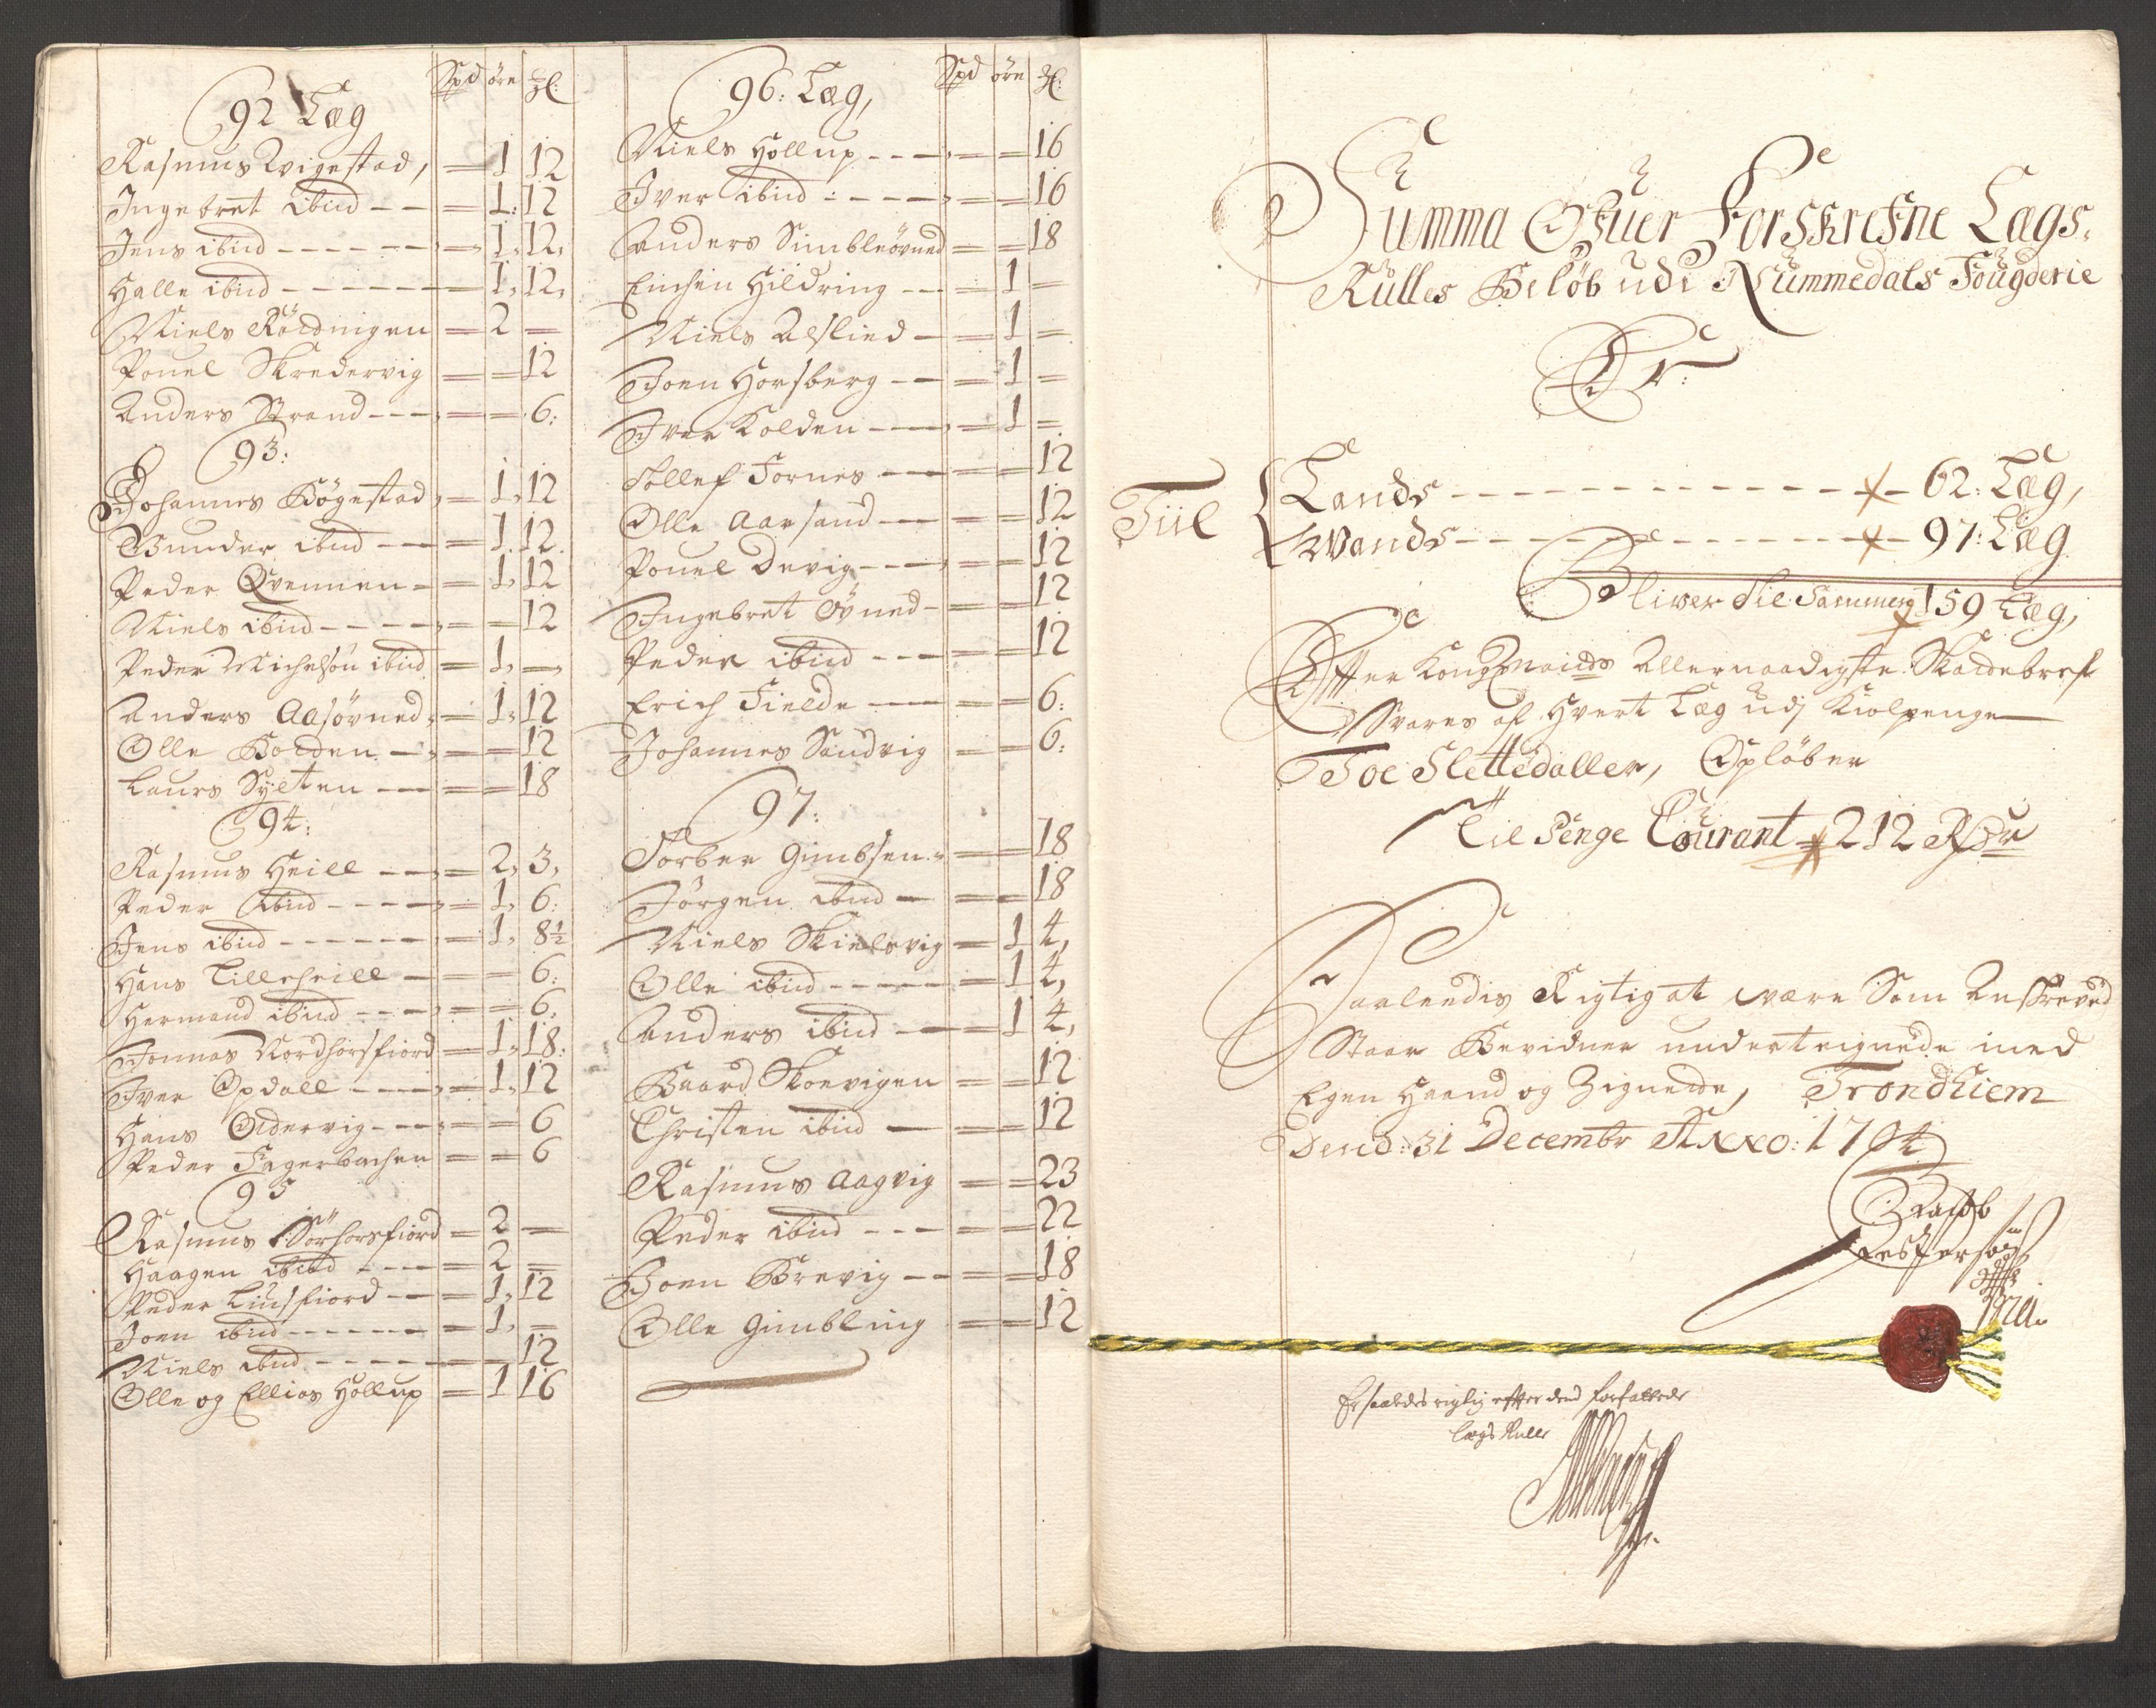 Spd öre
92 Læg
Rasmus Qvigestad, = 1 12
Ingebret ibid -- = 1: 12
Jens ibid - - - - - = 1, 12,
Halle ibid - - - - - - 1, 12,
Niels Röldnigen = 2 =
Pouel Skredervig = = 12
Anders Strand - - - = = 6:
93:
Johannes Högestad, = 1, 12
Gunder ibid - - = 1. 12.
Peder Qvennen - = 1, 12
Niels ibid - - - - = = 12
Peder Michelsön ibid = 1, =
Anders Aasövned = 1, 12
Olle Holden - - = = 12
Laurs Sylten - - = = 18
94:
Rasmus Heill - - - = 2, 3,
Peder ibid - - - - = 1, 6:
Jens ibid - - - - - - = 1, 8½
Hans Lilleheill - = = 6:
Hermand ibid - - - = = 6,
Jonnas Nordhorsfiord = 1, 18:
Iver Opdall - - - - = 1, 12
Hans Oldervig - - - = = 6
Peder Fagerbachen = = 6
95
Rasmus Sörhorsfiord = 2 =
Haagen ibid - - - = 2 =
Peder Liusfiord - - = 1, 12
Joen ibid - - - - - - = 1, =
Niels ibid - - - - - - = 12
Olle og Ellias Hollup = 1 16
Spd örn
96: Læg,
Niels Hollup - - - = = 16
Iver ibid : - - - - = = 16
Anders Simbleövned = = 18
Einchen Hildring - - = 1 =
Niels Alslied - = 1 =
Joen Horsberg - - = 1 =
Iver Kolden - - = 1 =
Tollef Fornes - - = = 12
Olle Aarsand - - = = 12
Pouel Devig - - - = = 12
Ingebret Övned - = = 12
Peder ibid - - - = = 12
Erich Fielde - - = = 6:
Johannes Sandvig = = 6:
97:
Torber Gimbsen - = = 18
Jörgen ibid - = = 18
Niels Skielsvig = 1 4,
Olle ibid - - - - - = 1 4,
Anders ibid - - = 1 4,
Baard Skoevigen = = 12
Christen ibid - = = 12
Rasmus Aagvig = = 23
Peder ibid - - - = = 22
Joen Brevig - - = = 18
Olle Gimbling = = 12
Summa Ofuer Forskrefne Lægs,
Rulles Beløb udi Nummedals Fougderie
Er:
Tiil
Lands - - - - - - - - - - 62: Læg,
Wands - - - - - - - - - - 97: Læg
Bliver til Sammen 159 Læg,
Effter Kong Maiids Allernaadigste Skatdebref
Svares af Hvert Læg udj Kiolpenge
Toe Slettedaller, Opløber
Til Penge Courant 212 Rdr
Saaledis Rigtig at være Som Anskreved
Staar Bevidner underteignede med
Egen Haand og Zignete, Trondhiem
Dend: 31 Decembr Anno: 1704
Jacob
Jespersøn
Er saaledes rigtig effter dend forfattede
Lægs Rulle